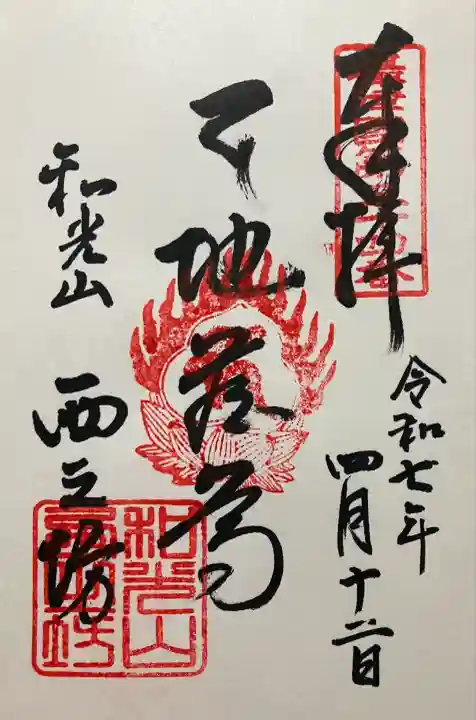 奉拝
令和七年
四月十二日
地蔵尊
和光山 西之坊
和光山